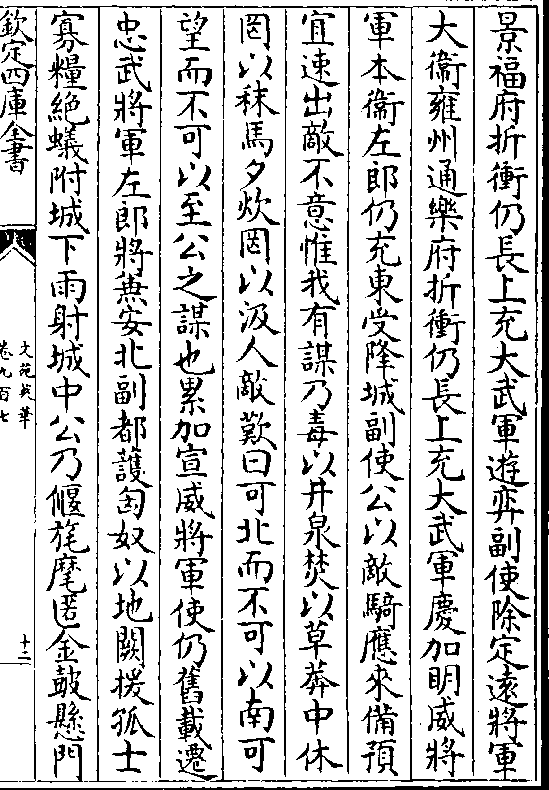 景福府折衝仍長上充大武軍遊弈副使除定遠將軍
大衞雍州通樂府折衝仍長上充大武軍慶加明威將
軍本衞左郎仍充東受降城副使公以敵騎應來備預
宜速出敵不意惟我有謀乃毒以井泉焚以草莽中休
罔以秣馬夕炊罔以汲人敵歎曰可北而不可以南可
望而不可以至公之謀也累加宣威將軍使仍舊載遷
忠武將軍左郎將兼安北副都護匈奴以地闕援孤士
寡糧絶蟻附城下雨射城中公乃偃旄麾匿金鼓懸門
欽定四庫全書
文苑英華
卷九百七
十二